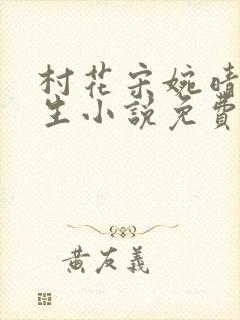 村花宋婉晴
生小說免費
黃友義